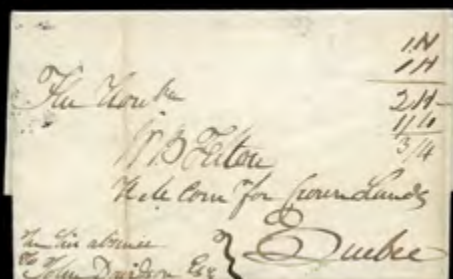 1N
1N
2N
1/6
3/4
The Honble
W B Felton
H. M. Comr for Crown Lands
Quebec
In his absence
to John Davidson Esq